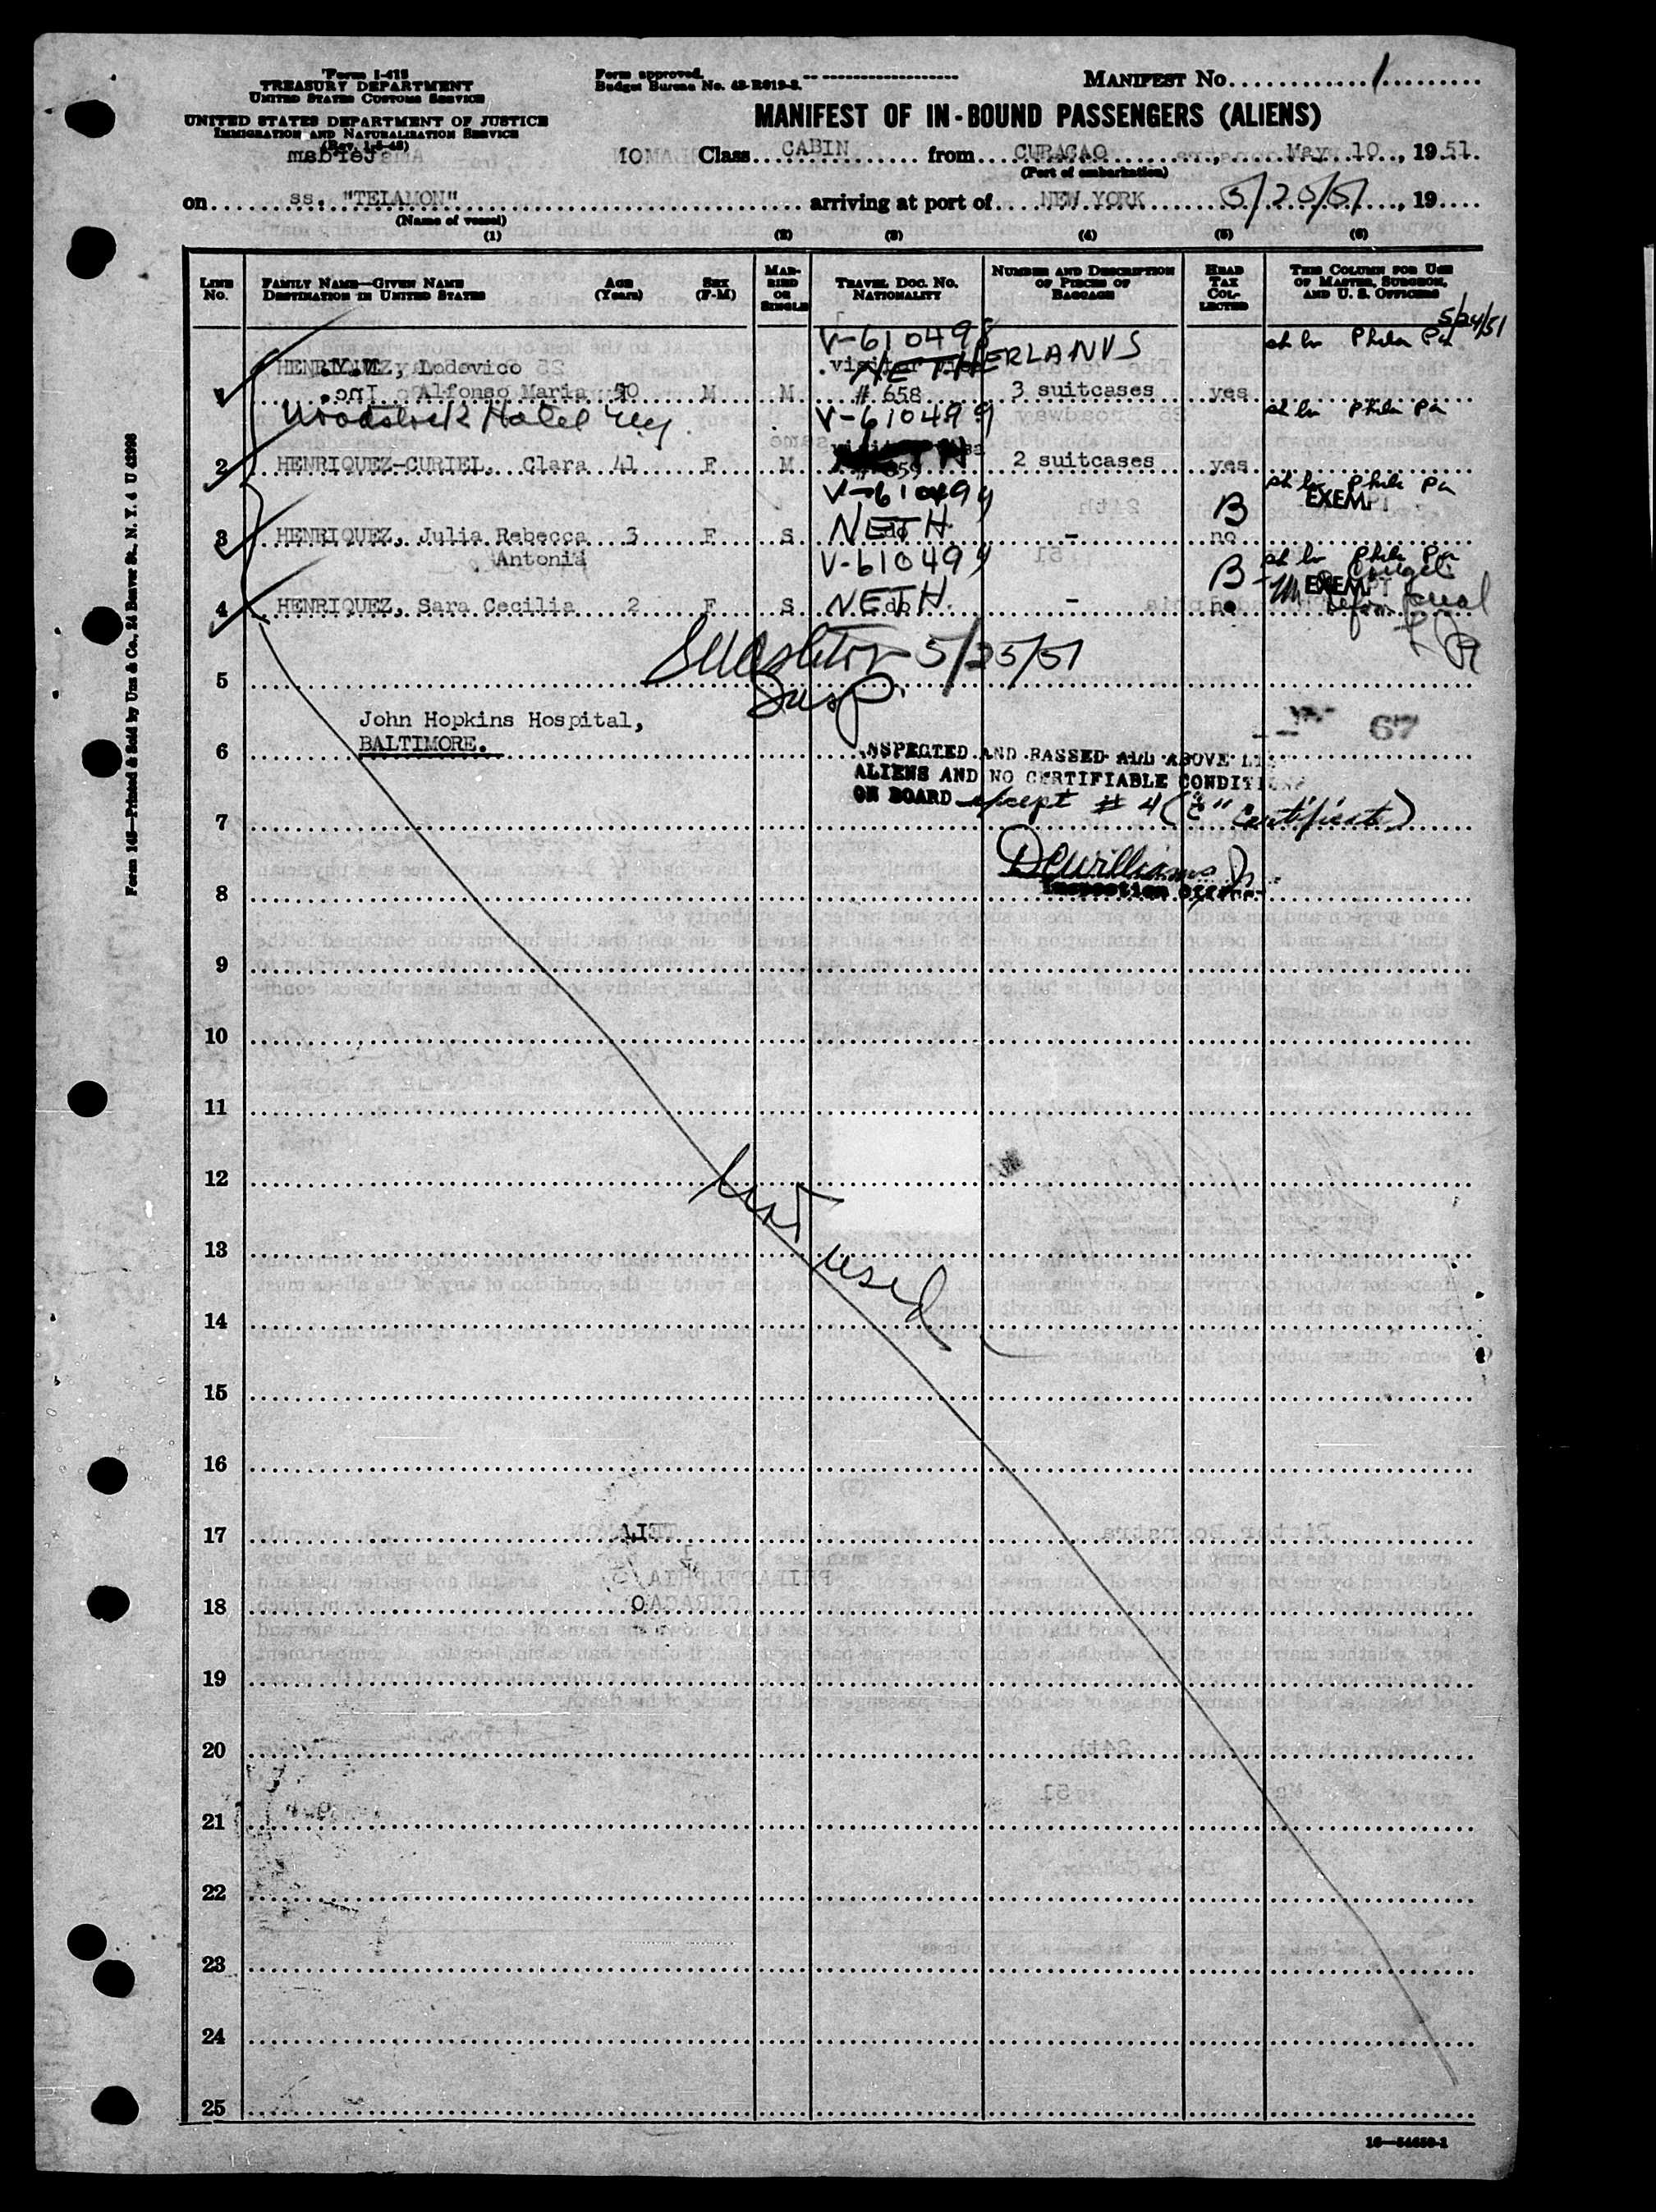 Form I-415
TREASURY DEPARTMENT
UNITED STATES CUSTOMS SERVICE
UNITED STATES DEPARTMENT OF JUSTICE
IMMIGRATION AND NATURALIZATION SERVICE
(Rev. 1-5-48)
Form approved.
Budget Bureau No. 43-R019-2.
MANIFEST No. 1
MANIFEST OF IN-BOUND PASSENGERS (ALIENS)
Class CABIN from CURACAO, May 10, 1951.
(Port of embarkation)
on ss. "TELAMON" arriving at port of NEW YORK 5/25/51, 19
(Name of vessel)
(1) (2) (3) (4) (5) (6)
LINE No.
FAMILY NAME—GIVEN NAME
DESTINATION IN UNITED STATES
AGE (Years)
SEX (F-M)
MARRIED OR SINGLE
TRAVEL DOC. NO.
NATIONALITY
NUMBER AND DESCRIPTION OF PIECES OF BAGGAGE
HEAD TAX COLLECTED
THIS COLUMN FOR USE OF MASTER, SURGEON, AND U. S. OFFICERS
5/24/51
V-610498 Phila Pa
HENRIQUEZ, Lodovico NETHERLANDS
1 Alfonso Maria 50 M M # 658 3 suitcases yes
Woodstock Hotel V-610499 Phila Pa
2 HENRIQUEZ-CURIEL, Clara 41 F M # 659 2 suitcases yes
V-610499 B Phila Pa
EXEMPT
3 HENRIQUEZ, Julia Rebecca 3 F S NETH do - no
Antonia V-610499 B Phila Pa
EXEMPT
4 HENRIQUEZ, Sara Cecilia 2 F S NETH do - no
5/25/51
5
Insp.
John Hopkins Hospital,
6 BALTIMORE.
67
INSPECTED AND PASSED ALL ABOVE
ALIENS AND NO CERTIFIABLE CONDITIONS
ON BOARD except # 4 ("C" Certificate)
7
DCWilliams Jr.
Inspection Officer
8
9
10
11
12
not used
13
14
15
16
17
18
19
20
21
22
23
24
25
16—54650-1
Form 145—Printed & Sold by Unz & Co., 24 Beaver St., N. Y. 4